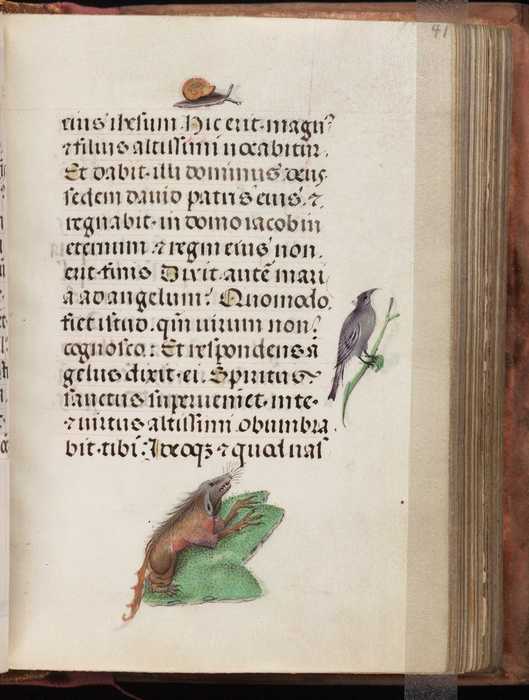 41
eius ihesum. Hic erit. magn᷒
⁊ filius altissimi uocabitur.
Et dabit. illi dominus deus
sedem dauid patris eius. ⁊.
regnabit. in domo iacob in
eternum. ⁊ regni eius non.
erit. finis. Dixit. autē mari
a ad angelum? Quomodo.
fiet istud. qm̄ uirum non?
cognosco: Et respondens ā
gelus dixit. ei. Spiritus
sanctus superueniet. in te.
⁊ uirtus altissimi obumbra.
bit. tibi. Ideoqꝫ ⁊ quod nas